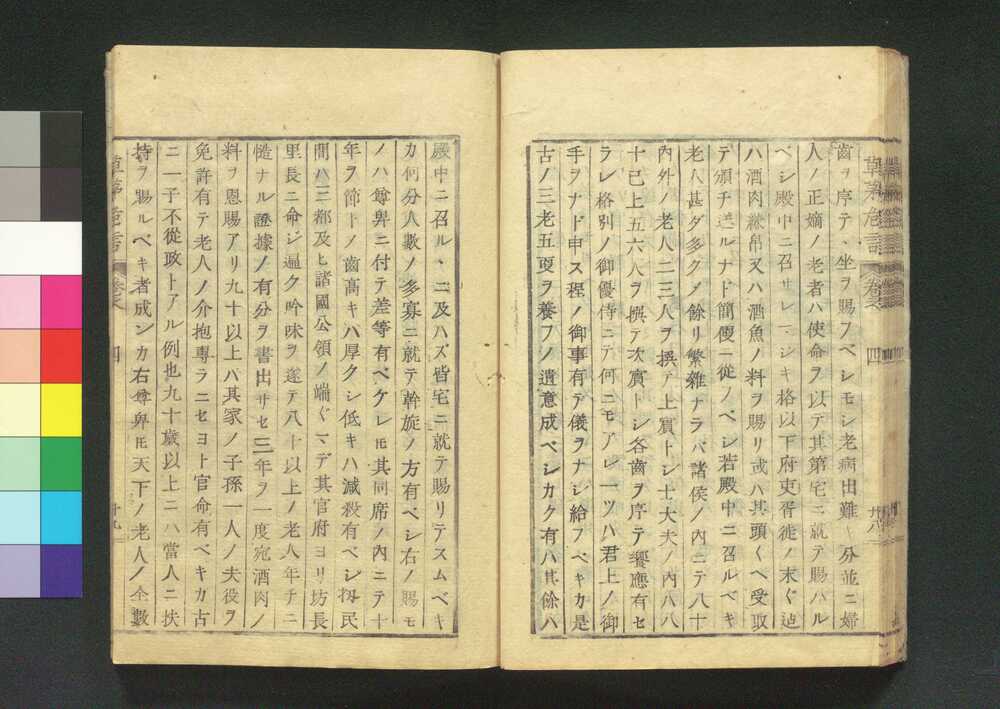 齒ヲ序テ、坐ヲ賜フベシモシ老病出難キ分並ニ婦
人ノ正嫡ノ老者ハ使命ヲ以テ其第宅ニ就テ賜ハル
ベシ殿中ニ召サレマジキ格以下府吏胥徒ノ末ぐ迠
ハ酒肉絲帛又ハ酒魚ノ料ヲ賜リ或ハ其頭くヘ受取
テ頒チ送ルナド簡便ニ從ノベシ若殿中ニ召ルベキ
老人甚ダ多クメ餘リ繁雜ナラバ諸侯ノ内ニテ八十
内外ノ老人二三人ヲ撰テ上賓トシ士大夫ノ内八八
十已上五六人ヲ撰テ次賓トシ各齒ヲ序テ饗應有セ
ラレ格別ノ御優待ニテ何ニモアレ一ツハ君上ノ御
手ヲナド申ス程ノ御事有テ儀ヲナシ給フベキカ是
古ノ三老五叟ヲ養フノ遺意成ベシカク有ハ其餘ハ
草茅危言 卷之 四
殿中ニ召ル、ニ及ハズ皆宅ニ就テ賜リテスムベキ
カ何分人數ノ多寡ニ就テ幹旋ノ方有ベシ右ノ賜モ
ノハ尊卑ニ付テ差等有ベケレ𪜈其同席ノ内ニテ十
年ヲ節トノ齒高キハ厚クシ低キハ減殺有ベシ扨民
間ハ三都及ヒ諸國公領ノ端ぐマデ其官府ヨリ坊長
里長ニ命ジ遍ク吟味ヲ遂テ八十以上ノ老人年チニ
慥ナル證據ノ有分ヲ書出サセ三年ヲ一度宛酒肉ノ
料ヲ恩賜アリ九十以上ハ其家ノ子孫一人ノ夫役ヲ
免許有テ老人ノ介抱専ラニセヨト官命有ベキカ古
ニ一子不從政トアル例也九十歳以上ニハ當人ニ扶
持ヲ賜ルベキ者成ンカ右尊卑𪜈天下ノ老人ノ全數
草茅危言 卷之 四 十九